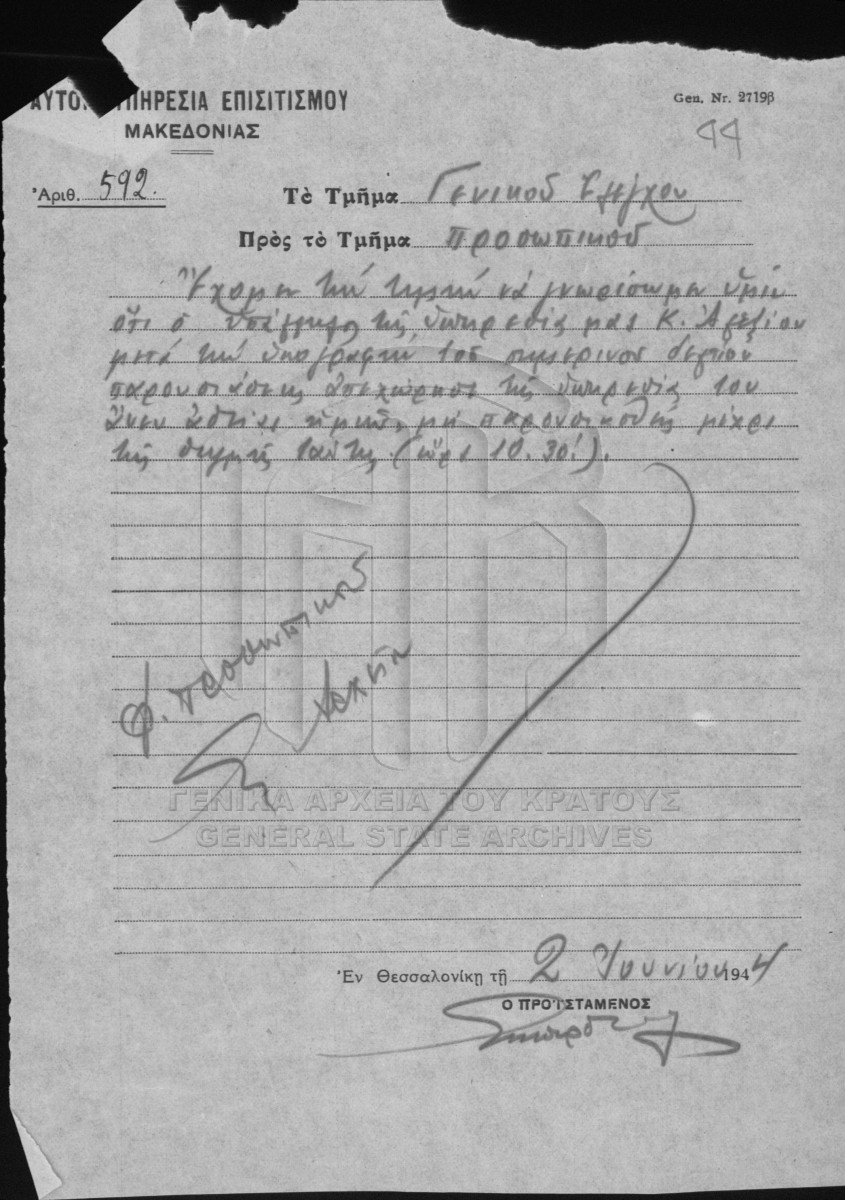 ΑΥΤΟΝ. ΥΠΗΡΕΣΙΑ ΕΠΙΣΙΤΙΣΜΟΥ
ΜΑΚΕΔΟΝΙΑΣ
Gen. Nr. 2719β
44
Ἀριθ. 592.
Τὸ Τμῆμα Γενικοῦ Ἐλέγχου
Πρὸς τὸ Τμῆμα Προσωπικοῦ
Ἔχομεν τὴν τιμὴν νὰ γνωρίσωμεν ὑμῖν
ὅτι ὁ ὑπάλληλος τῆς ὑπηρεσίας μας Κ. Ἀλεξίου
μετὰ τὴν ὑπογραφὴν τοῦ σημερινοῦ δελτίου
παρουσιάσεως ἀπεχώρησε τῆς ὑπηρεσίας του
ἄνευ ἀδείας ἡμῶν, μὴ παρουσιασθεὶς μέχρι
τῆς στιγμῆς ταύτης (ὥρα 10.30').
Φ. προσωπικοῦ
ΓΕΝΙΚΑ ΑΡΧΕΙΑ ΤΟΥ ΚΡΑΤΟΥΣ
GENERAL STATE ARCHIVES
Ἐν Θεσσαλονίκῃ τῇ 2 Ἰουνίου 1944
Ο ΠΡΟΪΣΤΑΜΕΝΟΣ